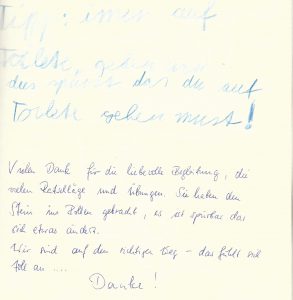 Tipp: immer auf
Toilete gehen
dies spürst das du auf
Toilete gehen must!
Vielen Dank für die liebevolle Begleitung, die
vielen Ratschläge und Übungen. Sie haben den
Stein ins Rollen gebracht, es ist spürbar das
sich etwas ändert.
Wir sind auf dem richtigen Weg – das fühlt sich
toll an ....
Danke!